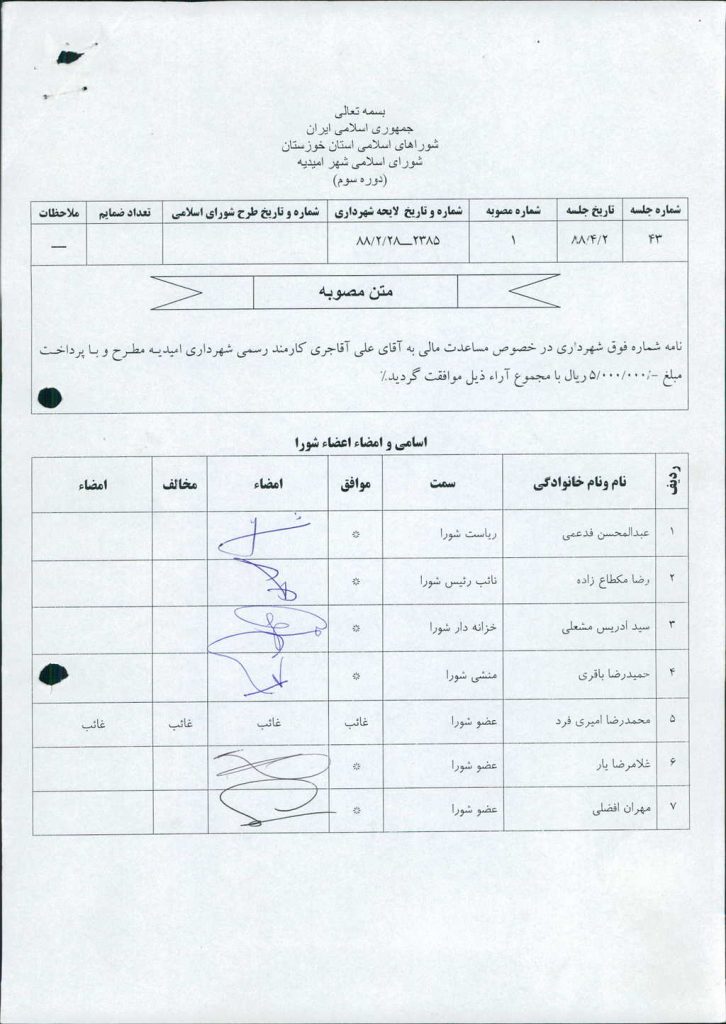 بسمه تعالی
جمهوری اسلامی ایران
شوراهای اسلامی استان خوزستان
شورای اسلامی شهر امیدیه
(دوره سوم)
شماره جلسه تاریخ جلسه شماره مصوبه شماره و تاریخ لایحه شهرداری شماره و تاریخ طرح شورای اسلامی تعداد ضمایم ملاحظات
۴۳ ۸۸/۴/۲ ۱ ۲۳۸۵ــ۸۸/۲/۲۸ ــ
متن مصوبه
نامه شماره فوق شهرداری در خصوص مساعدت مالی به آقای علی آقاجری کارمند رسمی شهرداری امیدیه مطرح و با پرداخت
مبلغ -/۵/۰۰۰/۰۰۰ ریال با مجموع آراء ذیل موافقت گردید.٪
اسامی و امضاء اعضاء شورا
ردیف نام ونام خانوادگی سمت موافق امضاء مخالف امضاء
۱ عبدالمحسن فدعمی ریاست شورا *
۲ رضا مکطاع زاده نائب رئیس شورا *
۳ سید ادریس مشعلی خزانه دار شورا *
۴ حمیدرضا باقری منشی شورا *
۵ محمدرضا امیری فرد عضو شورا غائب غائب غائب غائب
۶ غلامرضا یار عضو شورا *
۷ مهران افضلی عضو شورا *